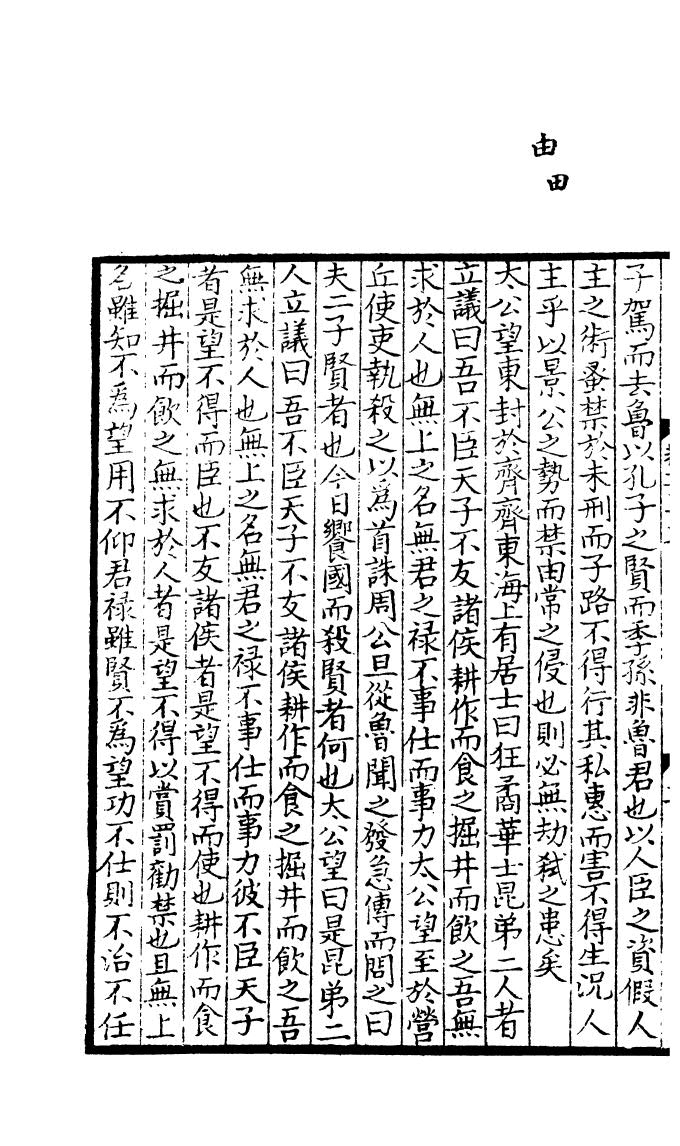 由
田
子駕而去魯以孔子之賢而季孫非魯君也以人臣之資假人
主之術蚤禁於未刑而子路不得行其私惠而害不得生況人
主乎以景公之勢而禁由常之侵也則必無劫弒之患矣
太公望東封於齊齊東海上有居士曰狂矞華士昆弟二人者
立議曰吾不臣天子不友諸侯耕作而食之掘井而飲之吾無
求於人也無上之名無君之祿不事仕而事力太公望至於營
丘使吏執殺之以爲首誅周公旦從魯聞之發急傳而問之曰
夫二子賢者也今日饗國而殺賢者何也太公望曰是昆弟二
人立議曰吾不臣天子不友諸侯耕作而食之掘井而飲之吾
無求於人也無上之名無君之祿不事仕而事力彼不臣天子
者是望不得而臣也不友諸侯者是望不得而使也耕作而食
之掘井而飲之無求於人者是望不得以賞罰勸禁也且無上
名雖知不爲望用不仰君祿雖賢不爲望功不仕則不治不任